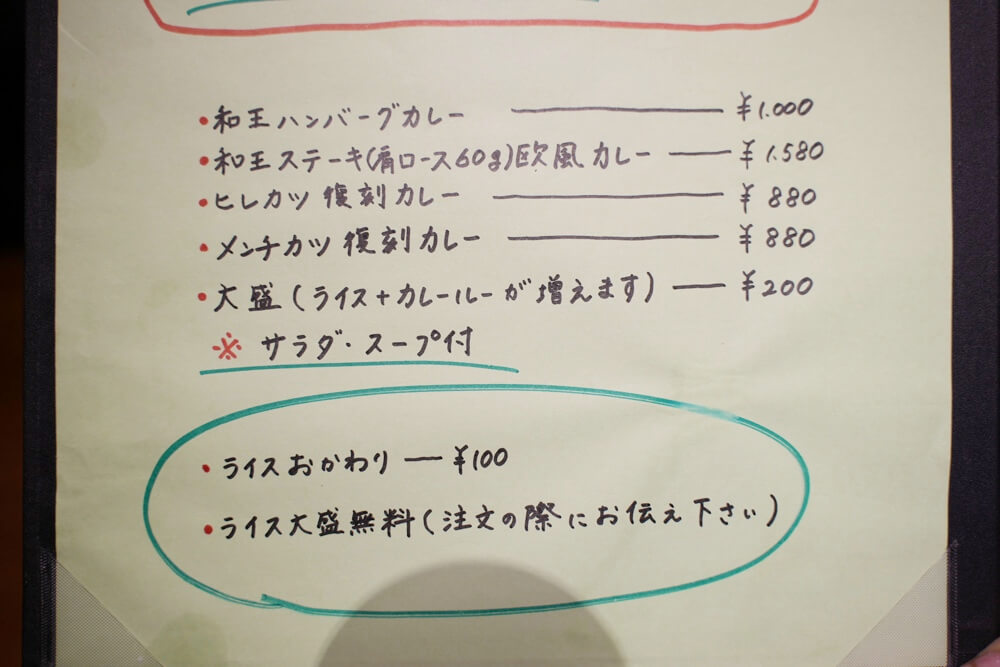 ・和王ハンバーグカレー ―――― ¥1.000
・和王ステーキ(肩ロース60g)欧風カレー ―― ¥1.580
・ヒレカツ 復刻カレー ―――― ¥880
・メンチカツ 復刻カレー ―――― ¥880
・大盛(ライス+カレールーが増えます) ―― ¥200
※ サラダ・スープ付
・ライスおかわり ― ¥100
・ライス大盛無料(注文の際にお伝え下さい)